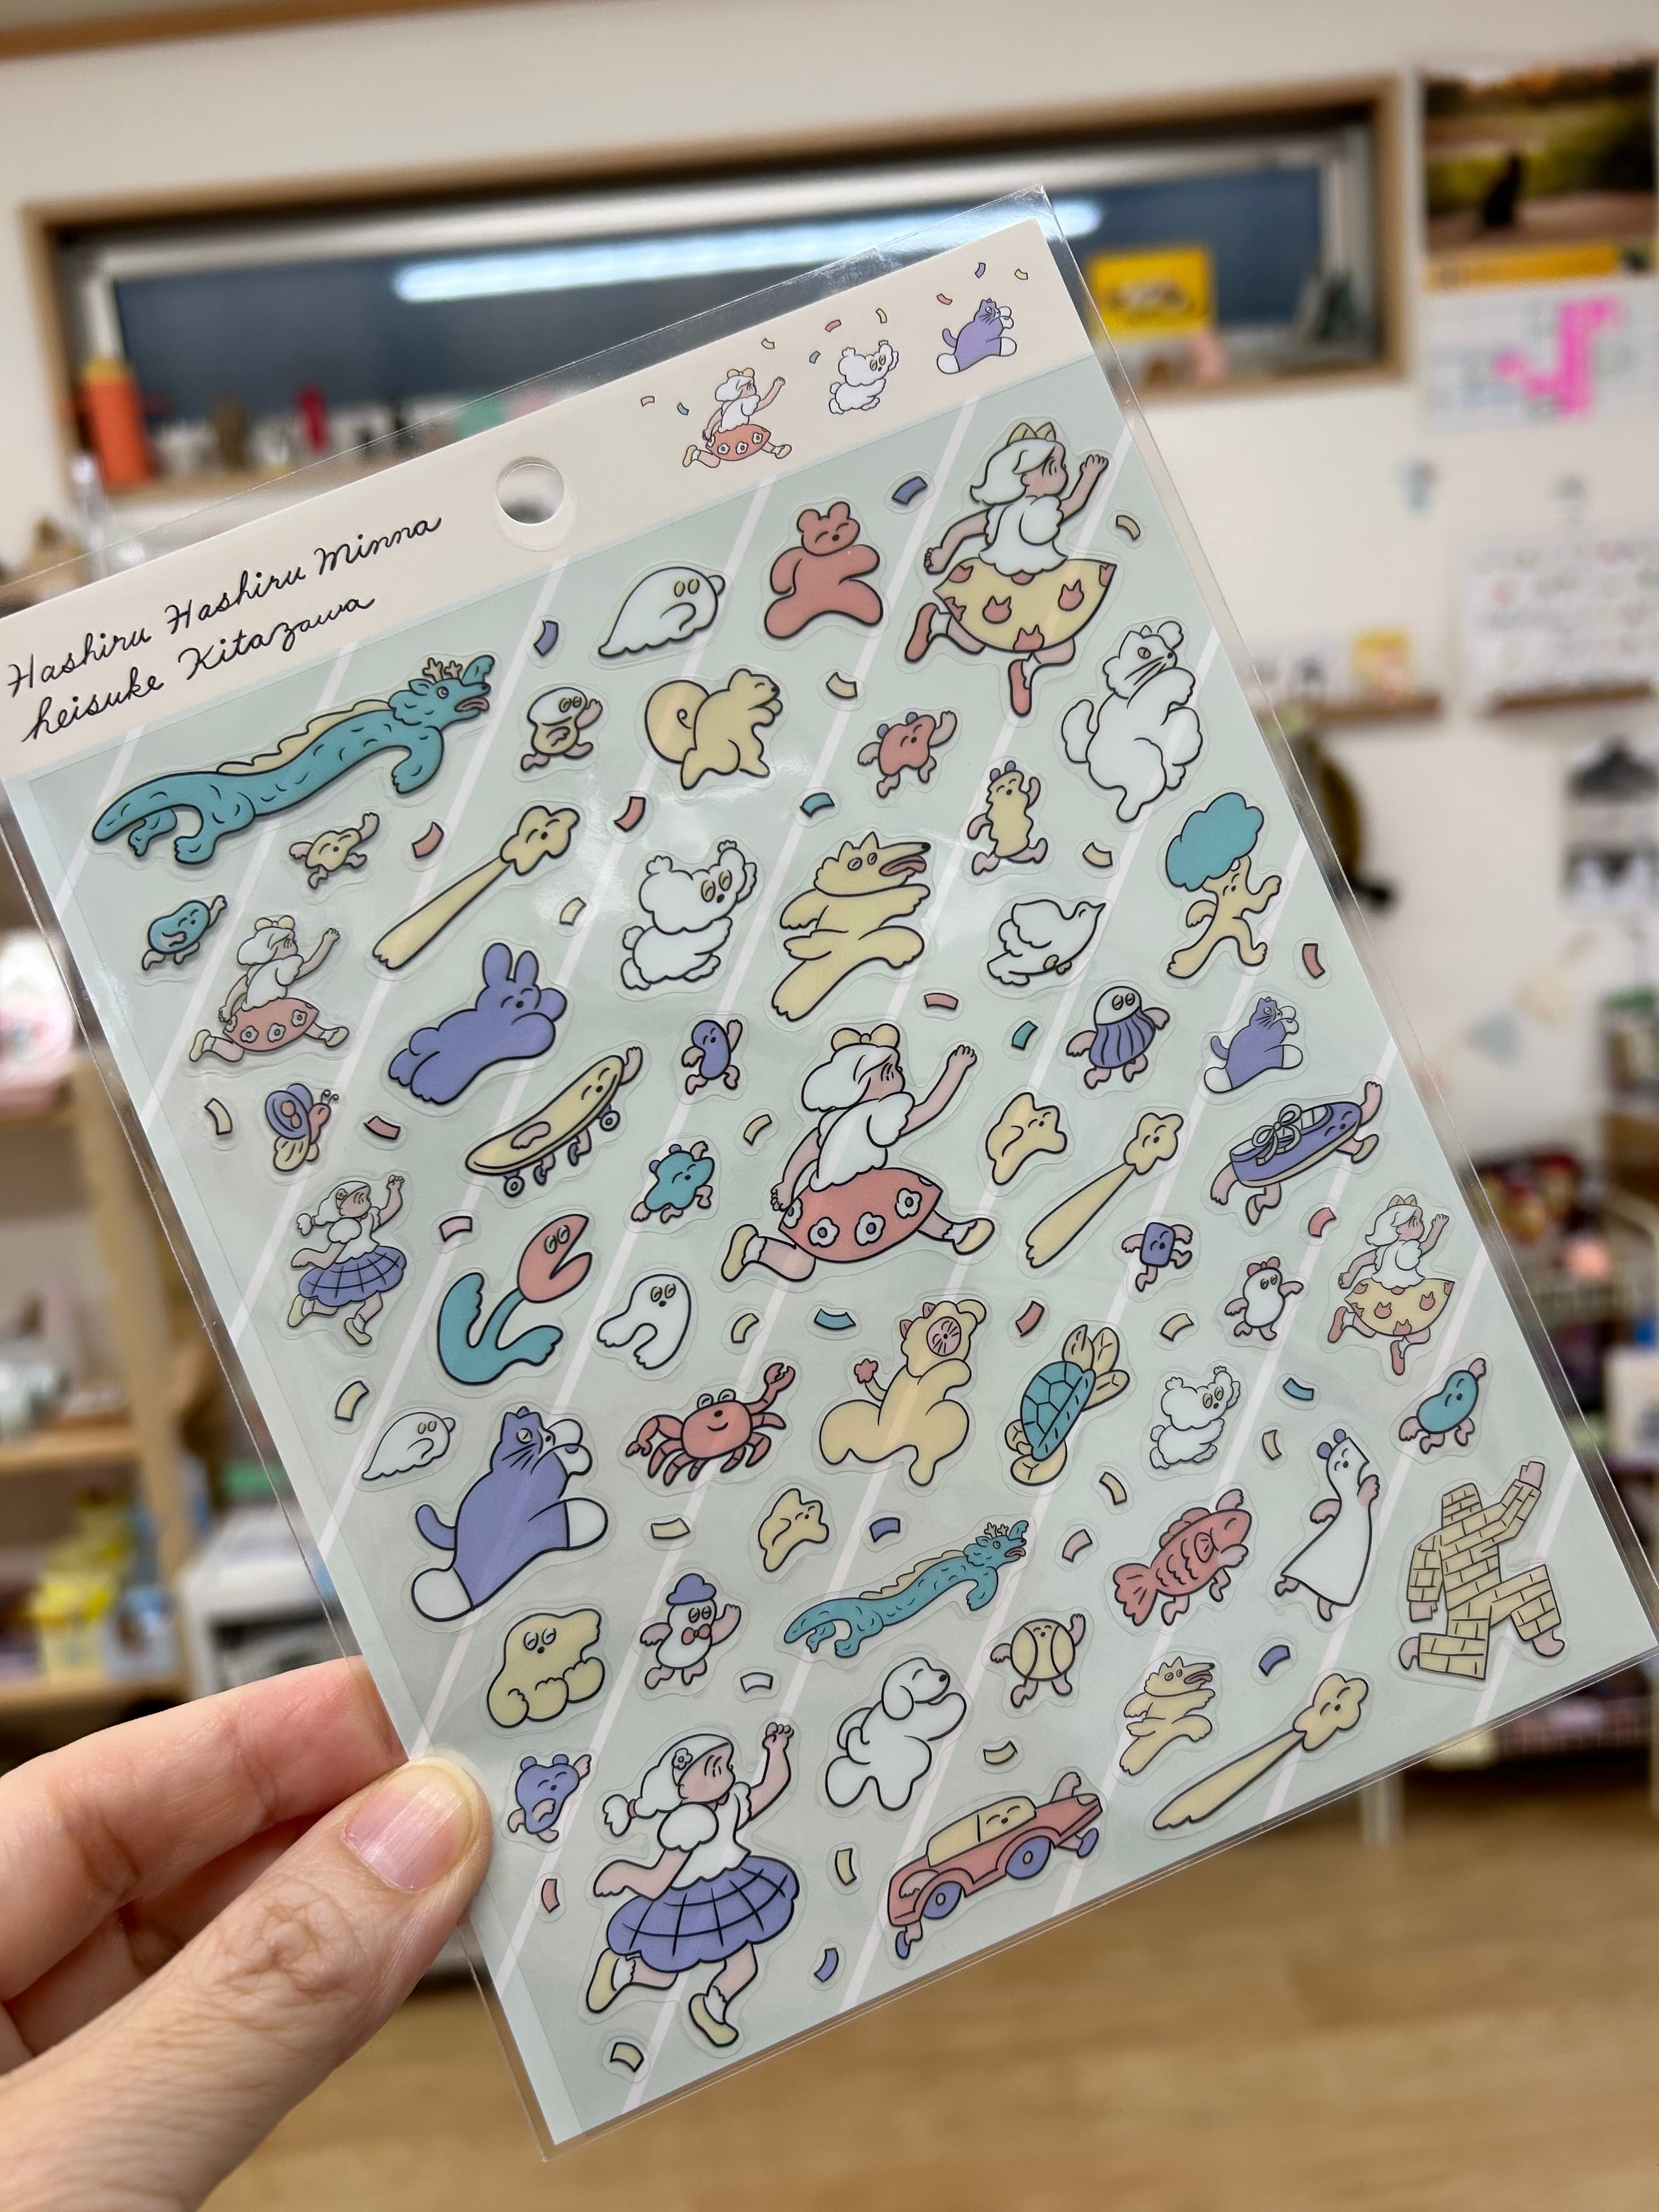 Hashiru Hashiru Minna
heisuke Kitazawa